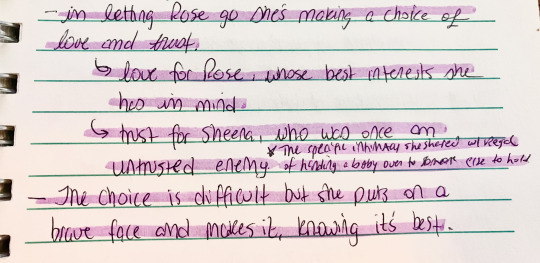 - in letting Rose go she's making a choice of
love and trust.
↳ love for Rose, whose best interests she
has in mind.
↳ trust for Sheena, who was once an
* The specific intimacy she shared w/
untrusted enemy. of handing a baby over to someone else to hold
- The choice is difficult but she puts on a
brave face and makes it, knowing it's best.